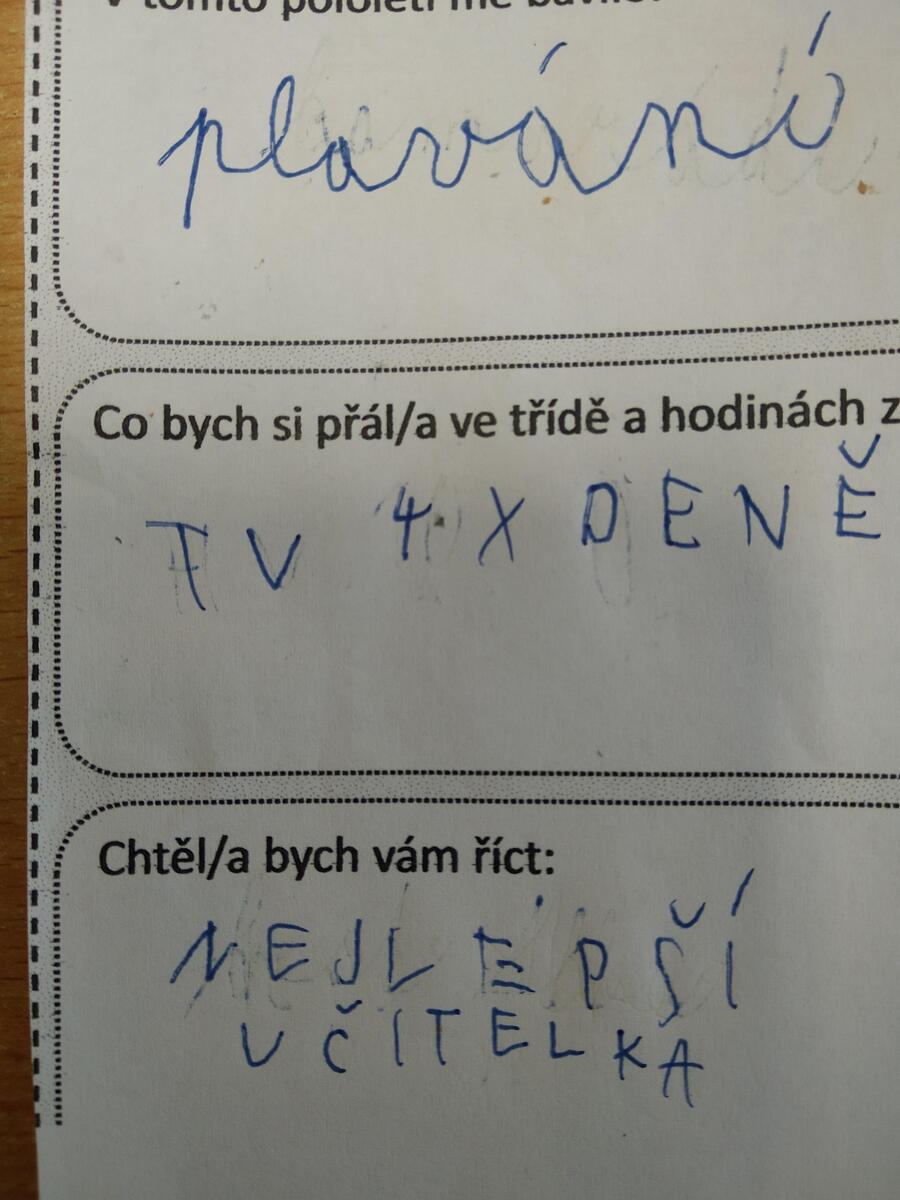 V tomto pololetí mě bavilo:
plavání
Co bych si přál/a ve třídě a hodinách z
TV 4 X DENĚ
Chtěl/a bych vám říct:
NEJLEPŠÍ
UČITELKA